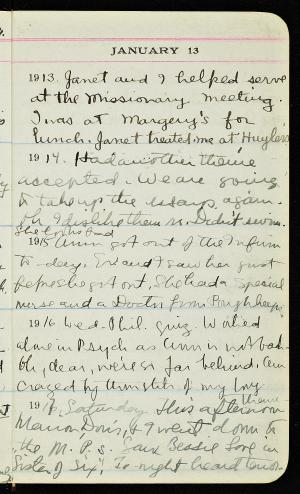 JANUARY 13
1913. Janet and I helped serve
at the Missionary meeting.
I was at Margery's for
lunch. Janet treated me at Huyler's
1914. Had another theme
accepted. We are going
to take up the essays again.
Oh I dislike them so. Didn't swim.
1915 Ann got out of the Infirm
to-day. Ev and I saw her just
before she got out. She had a special
nurse and a Doctor from Poughkeep
1916 Wed. Phil. quiz. Worked
alone in Psych as Ann is not back
Oh, dear, we're so far behind. Am
crazed by Ann
of my
19 Saturday This afternoon
Marion, Doris, & I went down to
the M. P.s. Saw Bessie Love in
"Sister of Six". To-night heard